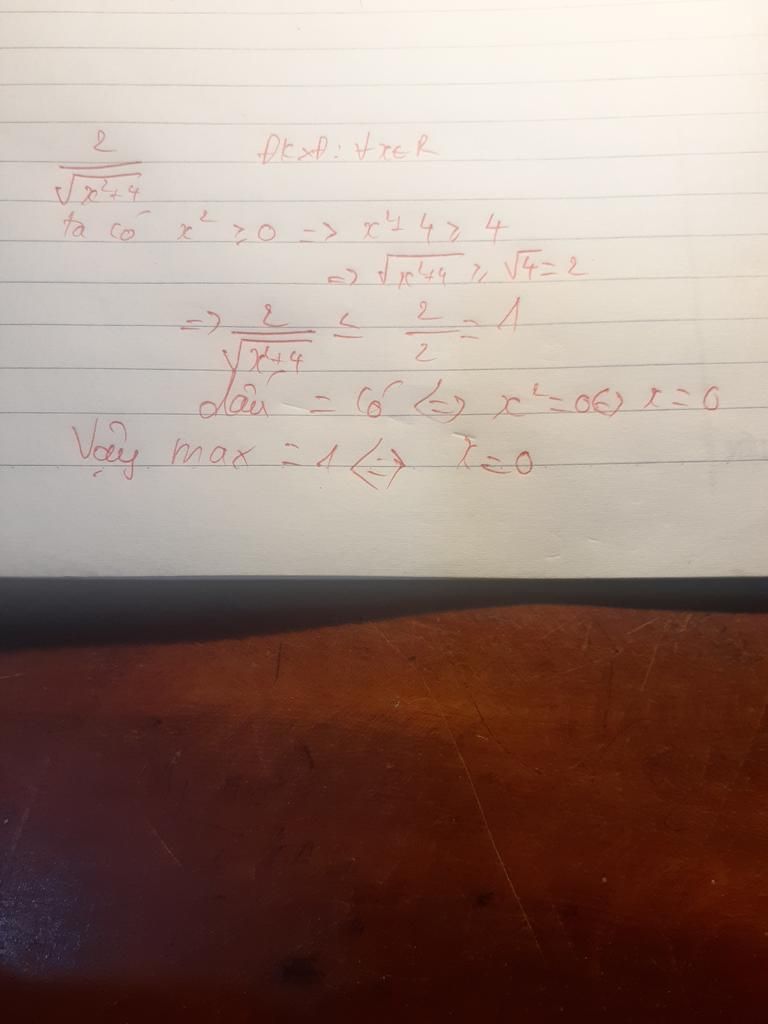 2/√(x²+4) ĐKXĐ: ∀x∈R
ta có x² ≥ 0 => x²+4 ≥ 4
=> √(x²+4) ≥ √4 = 2
=> 2/√(x²+4) ≤ 2/2 = 1
dấu = có <=> x² = 0 <=> x = 0
Vậy max = 1 <=> x = 0